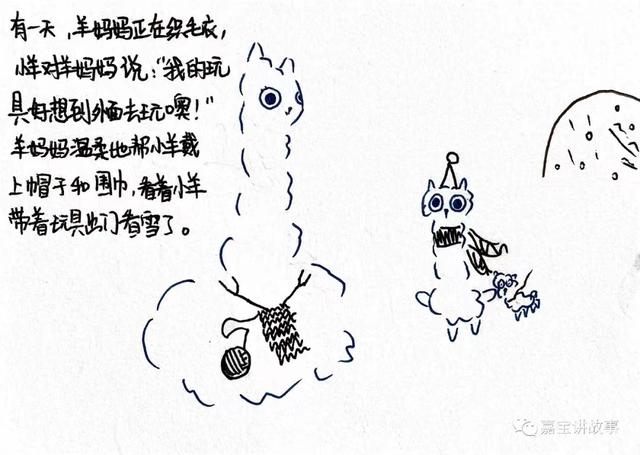 有一天，羊妈妈正在织毛衣，
小羊对羊妈妈说：“我的玩
具好想到外面去玩噢！”
羊妈妈温柔地帮小羊戴
上帽子和围巾，看着小羊
带着玩具出门看雪了。
嘉宝讲故事